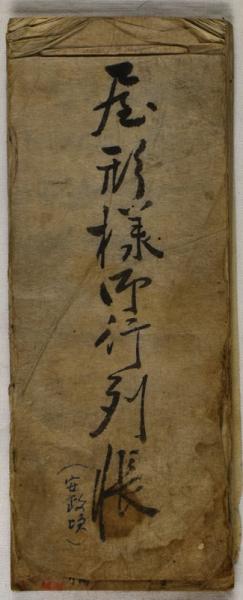 屋形様御行列帳
（安政頃）